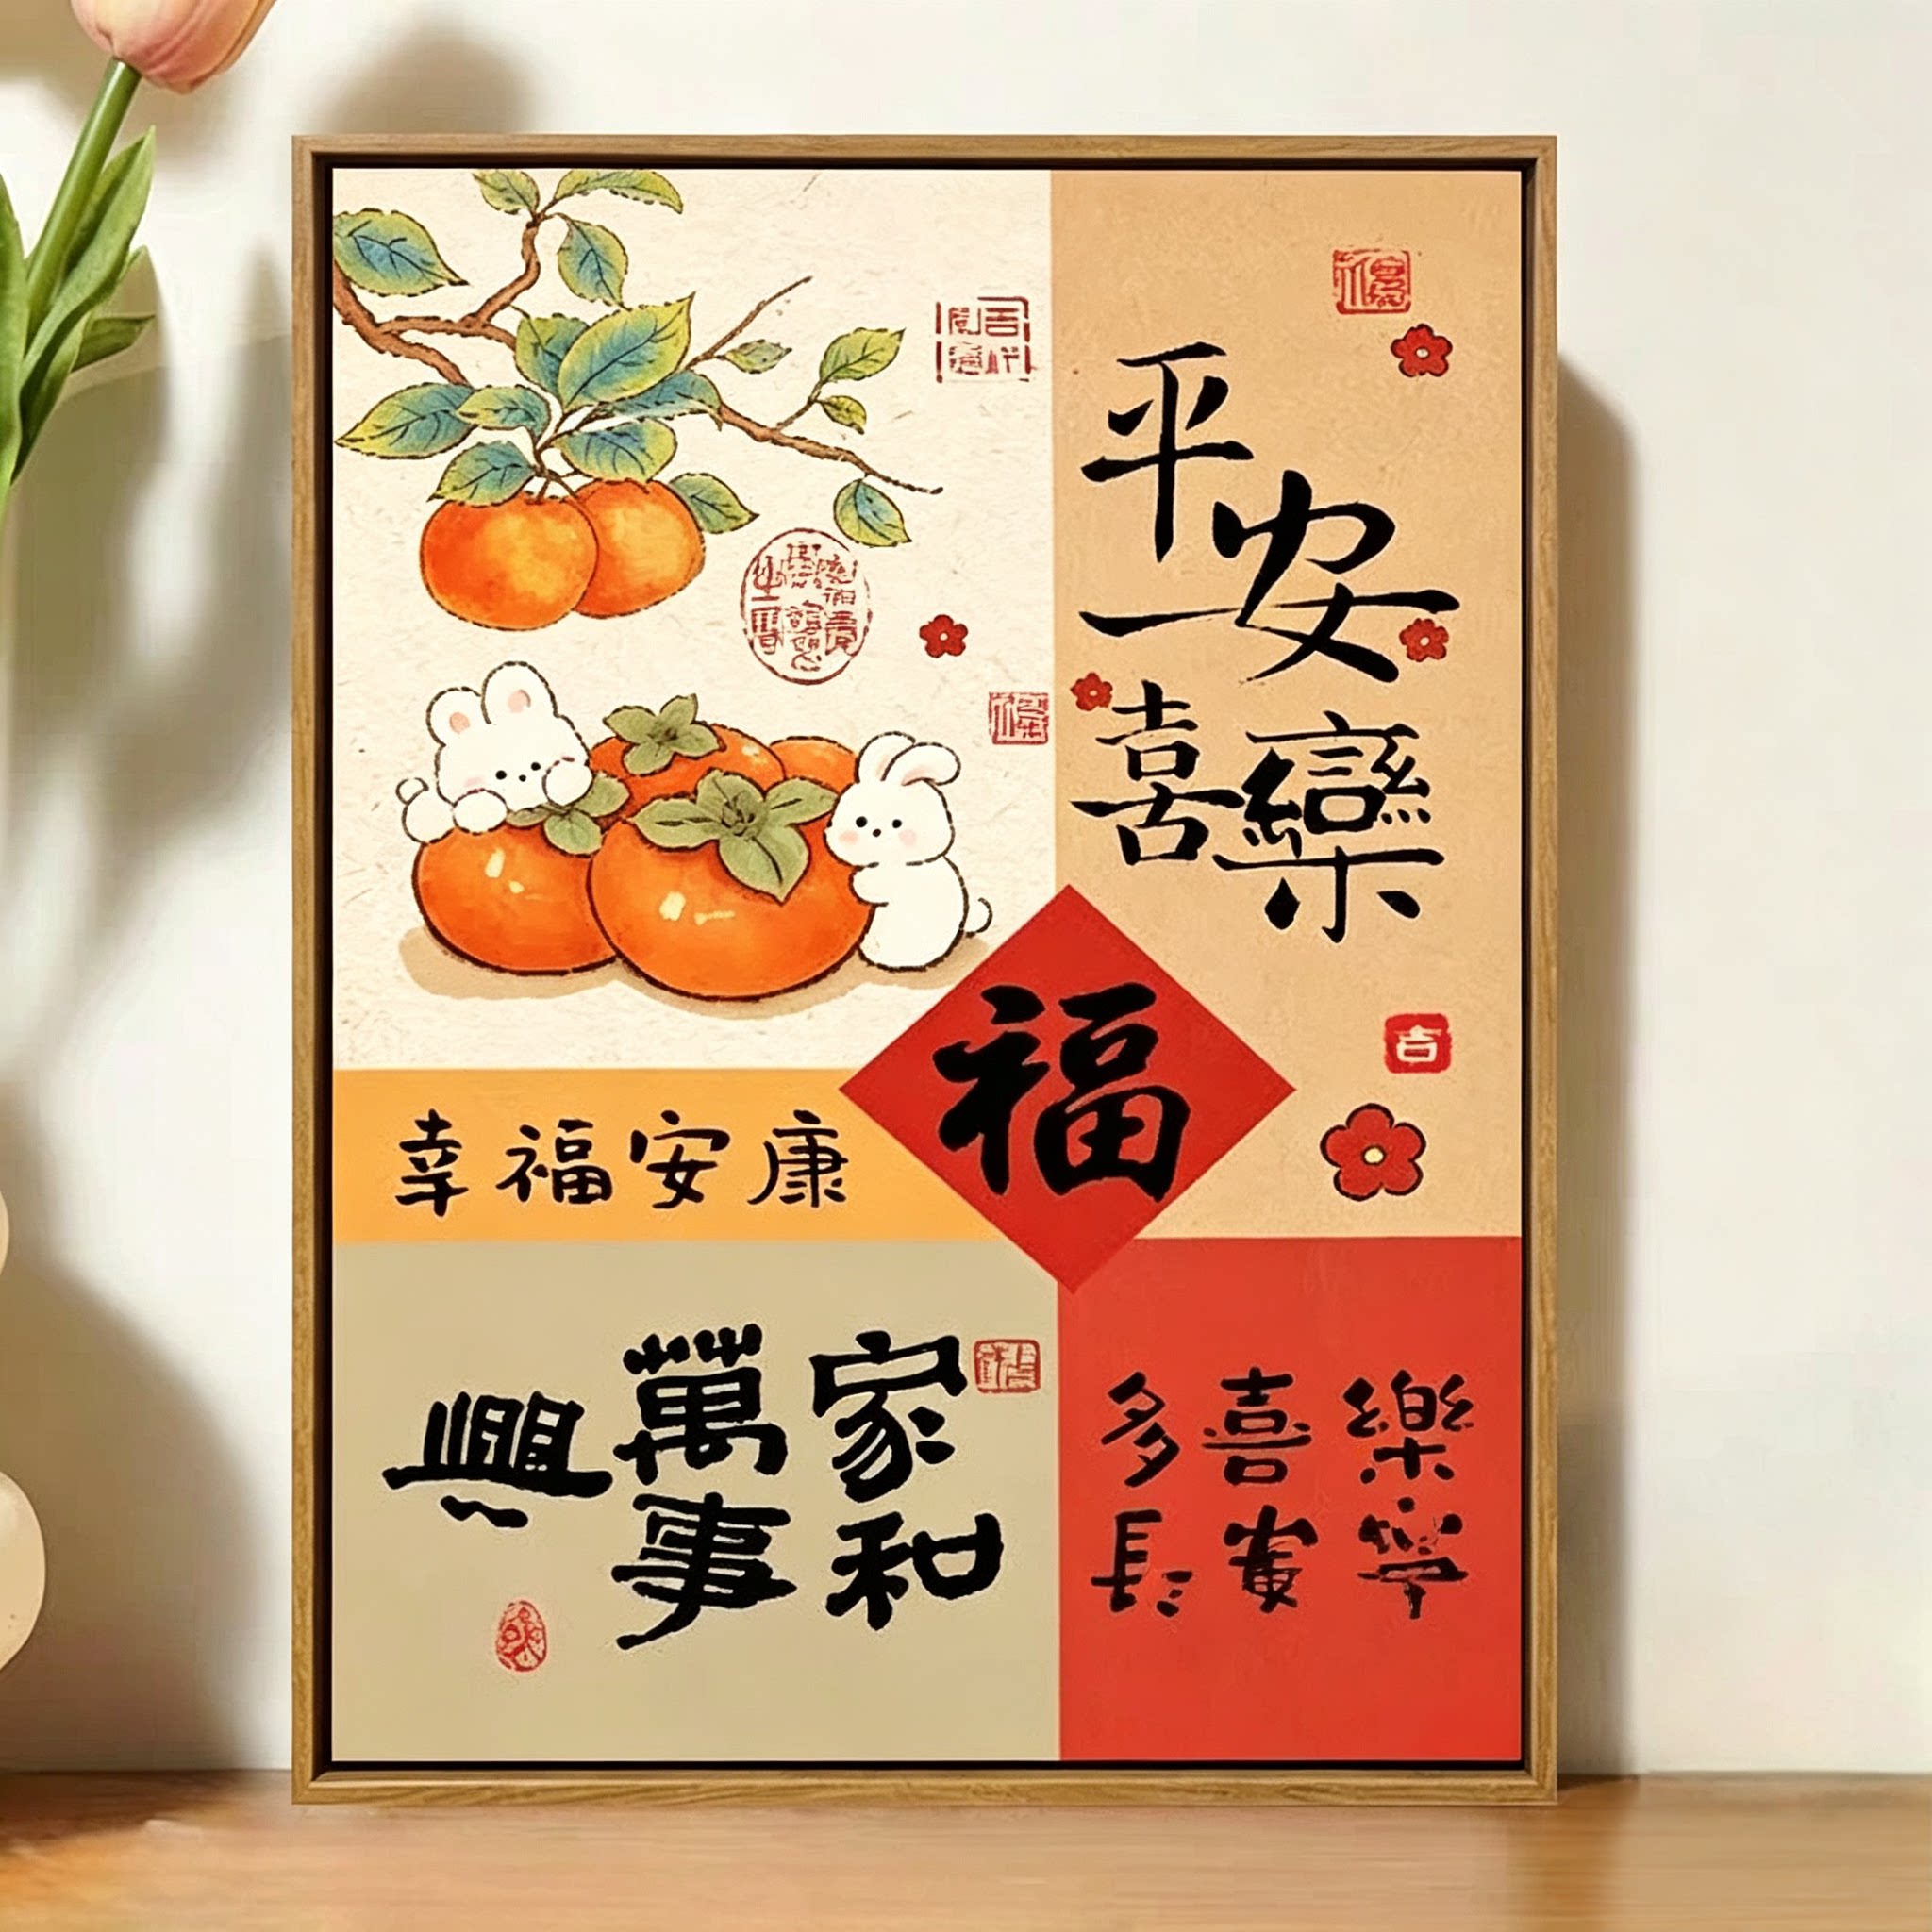 平安
喜欒
吉
福
幸福安康
家和
萬事
興
多喜樂
長